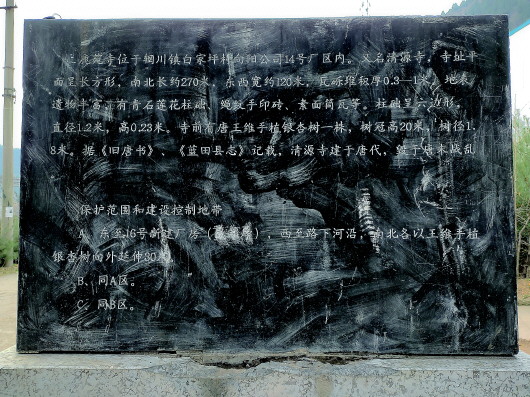 鹿苑寺位于辋川镇白家坪村向阳公司14号厂区内。又名清源寺。寺址平
面呈长方形，南北长约270米，东西宽约120米，瓦砾堆积厚0.3—1米，地表
遗物丰富，有青石莲花柱础、绳纹手印砖、素面筒瓦等。柱础呈六边形，
直径1.2米，高0.23米。寺前有唐王维手植银杏树一株，树冠高20米，树径1.
8米。据《旧唐书》、《蓝田县志》记载，清源寺建于唐代，毁于唐末战乱
保护范围和建设控制地带
A、东至16号新建厂房（），西至路下河沿，南北各以王维手植
银杏树向外延伸30米。
B、同A区。
C、同B区。